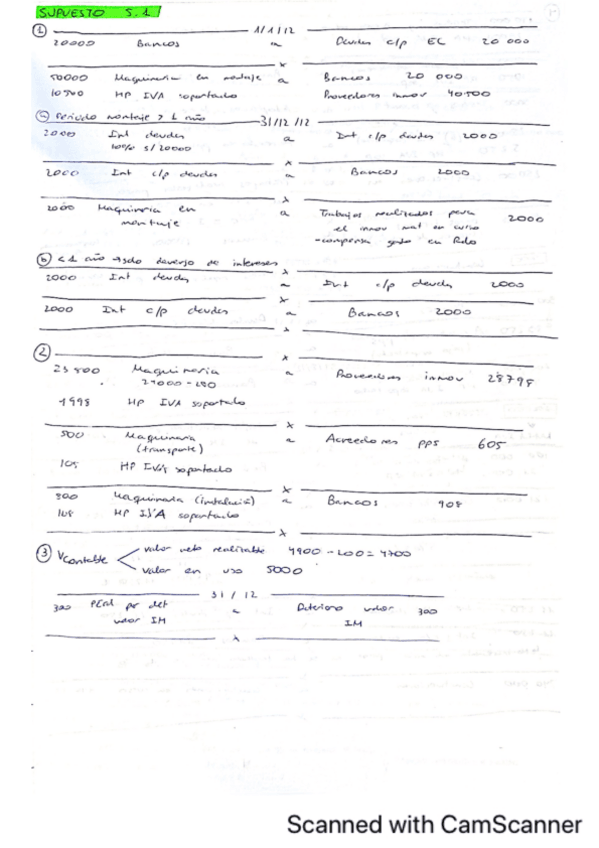 SUPUESTO 5.1/
① 1/1/12
20000 Bancos a Deudas c/p EC 20 000
x
50000 Maquinaria en montaje a Bancos 20 000
10500 HP IVA soportado Proveedores inmov 40500
ⓐ Periodo montaje > 1 año 31/12/12
2000 Int deudas a Int c/p deudas 2000
10% s/20000
x
2000 Int c/p deudas a Bancos 2000
x
2000 Maquinaria en montaje a Trabajos realizados para 2000
el inmov mat en curso
-compensa gasto en Rdo
ⓑ < 1 año → solo devengo de intereses
x
2000 Int deudas a Int c/p deudas 2000
x
2000 Int c/p deudas a Bancos 2000
x
② x
Maquinaria a Proveedores inmov 28798
1998 HP IVA soportado
x
500 Maquinaria a Acreedores pps 605
(transporte)
105 HP IVA soportado
x
Maquinaria (instalación) a Bancos 908
108 HP IVA soportado
x
③ Vcontable valor neto realizable 4900 - 200 = 4700
valor en uso 5000
31/12
300 Perd por det a Deterioro valor 300
valor IM IM
x
Scanned with CamScanner